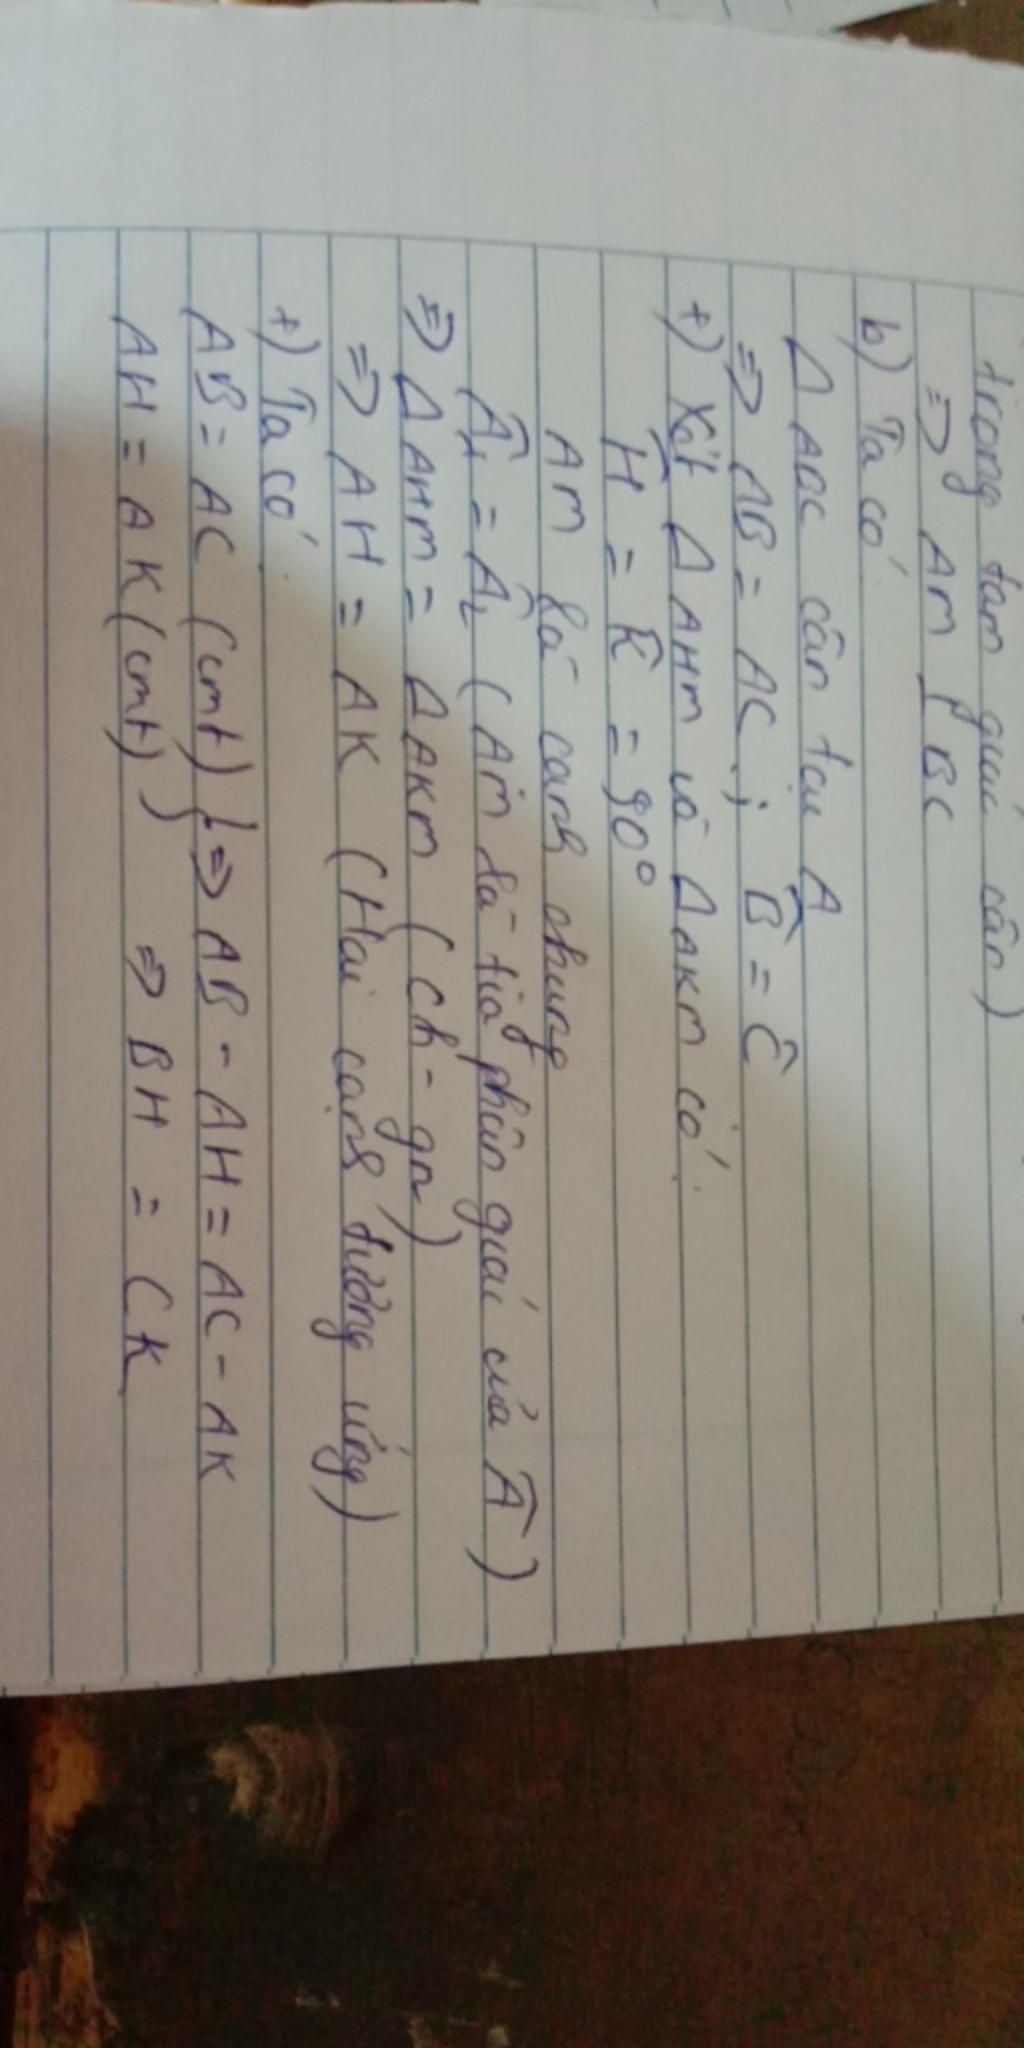 trong tam giác cân)
=> AM ⊥ BC
b) Ta có:
Δ ABC cân tại A
=> AB = AC ; B̂ = Ĉ
+) Xét Δ AHM và Δ AKM có:
Ĥ = K̂ = 90°
AM là cạnh chung
Â1 = Â2 (AM là tia phân giác của Â)
=> Δ AHM = Δ AKM (ch - gn)
=> AH = AK (Hai cạnh tương ứng)
+) Ta có:
AB = AC (cmt) } => AB - AH = AC - AK
AH = AK (cmt) => BH = CK